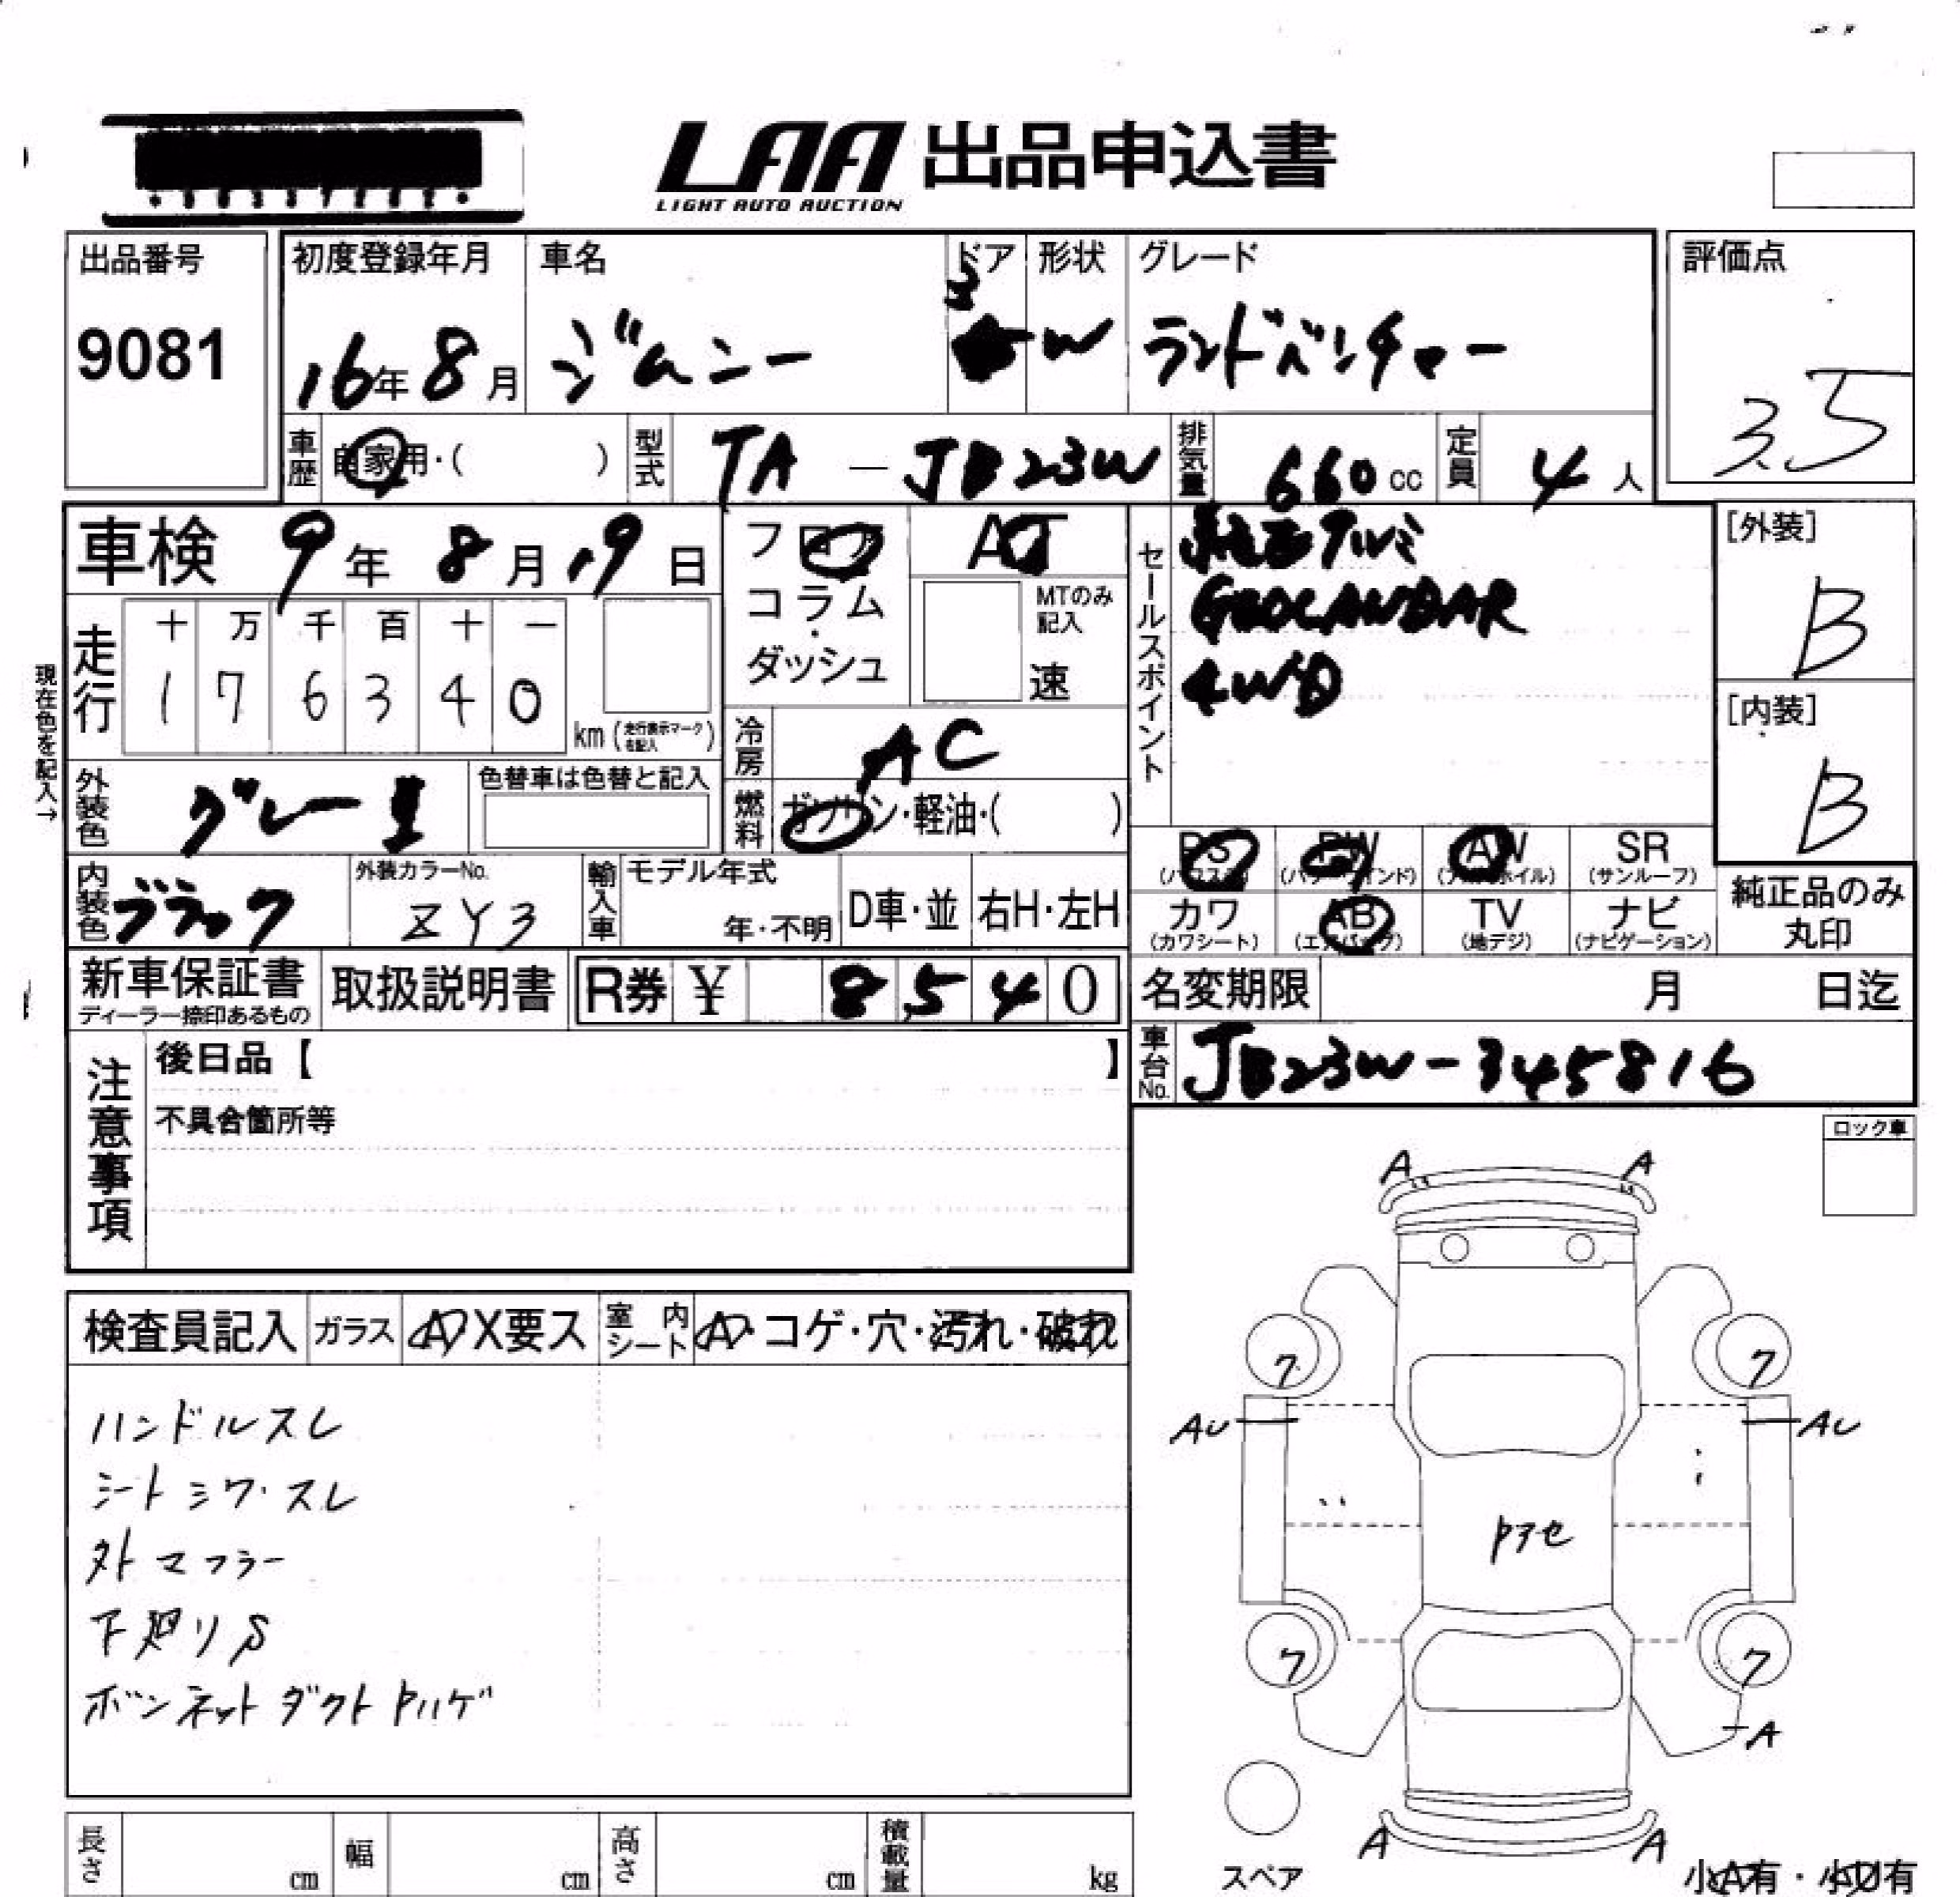 LAA 出品申込書
LIGHT AUTO AUCTION
出品番号
9081
初度登録年月
16年8月
車名
ジムニー
ドア
3
形状
W
グレード
ランドベンチャー
評価点
3.5
車歴
自家用・( )
型式
TA — JB23W
排気量
660cc
定員
4人
車検 9年8月19日
フロア
コラム
・
ダッシュ
AT
MTのみ
記入
速
セールスポイント
純正アルミ
4WD
[外装]
B
[内装]
B
現在色を記入→
走行
十 万 千 百 十 一
1 7 6 3 4 0
km(走行表示マーク右記入)
冷房
AC
燃料
ガソリン・軽油・( )
外装色
グレー
色替車は色替と記入
PS
(パワステ)
PW
(パワーウインド)
AW
(アルミホイル)
SR
(サンルーフ)
カワ
(カワシート)
AB
(エアバッグ)
TV
(地デジ)
ナビ
(ナビゲーション)
純正品のみ
丸印
内装色
ブラック
外装カラーNo.
ZY3
輸入車
モデル年式
年・不明
D車・並
右H・左H
新車保証書
ディーラー捺印あるもの
取扱説明書
R券 ¥ 8540
名変期限 月 日迄
車台No.
JB23W-345816
注意事項
後日品【 】
不具合箇所等
ロック車
検査員記入
ガラス
A X要ス
室内シート
A・コゲ・穴・汚れ・破れ
ハンドルスレ
シートシワ・スレ
外マフラー
下廻りS
ボンネットダクトトハゲ
A
A
7
7
AU
AU
トアセ
7
7
A
A
A
スペア
小A有・小U有
長さ cm
幅 cm
高さ cm
積載量 kg